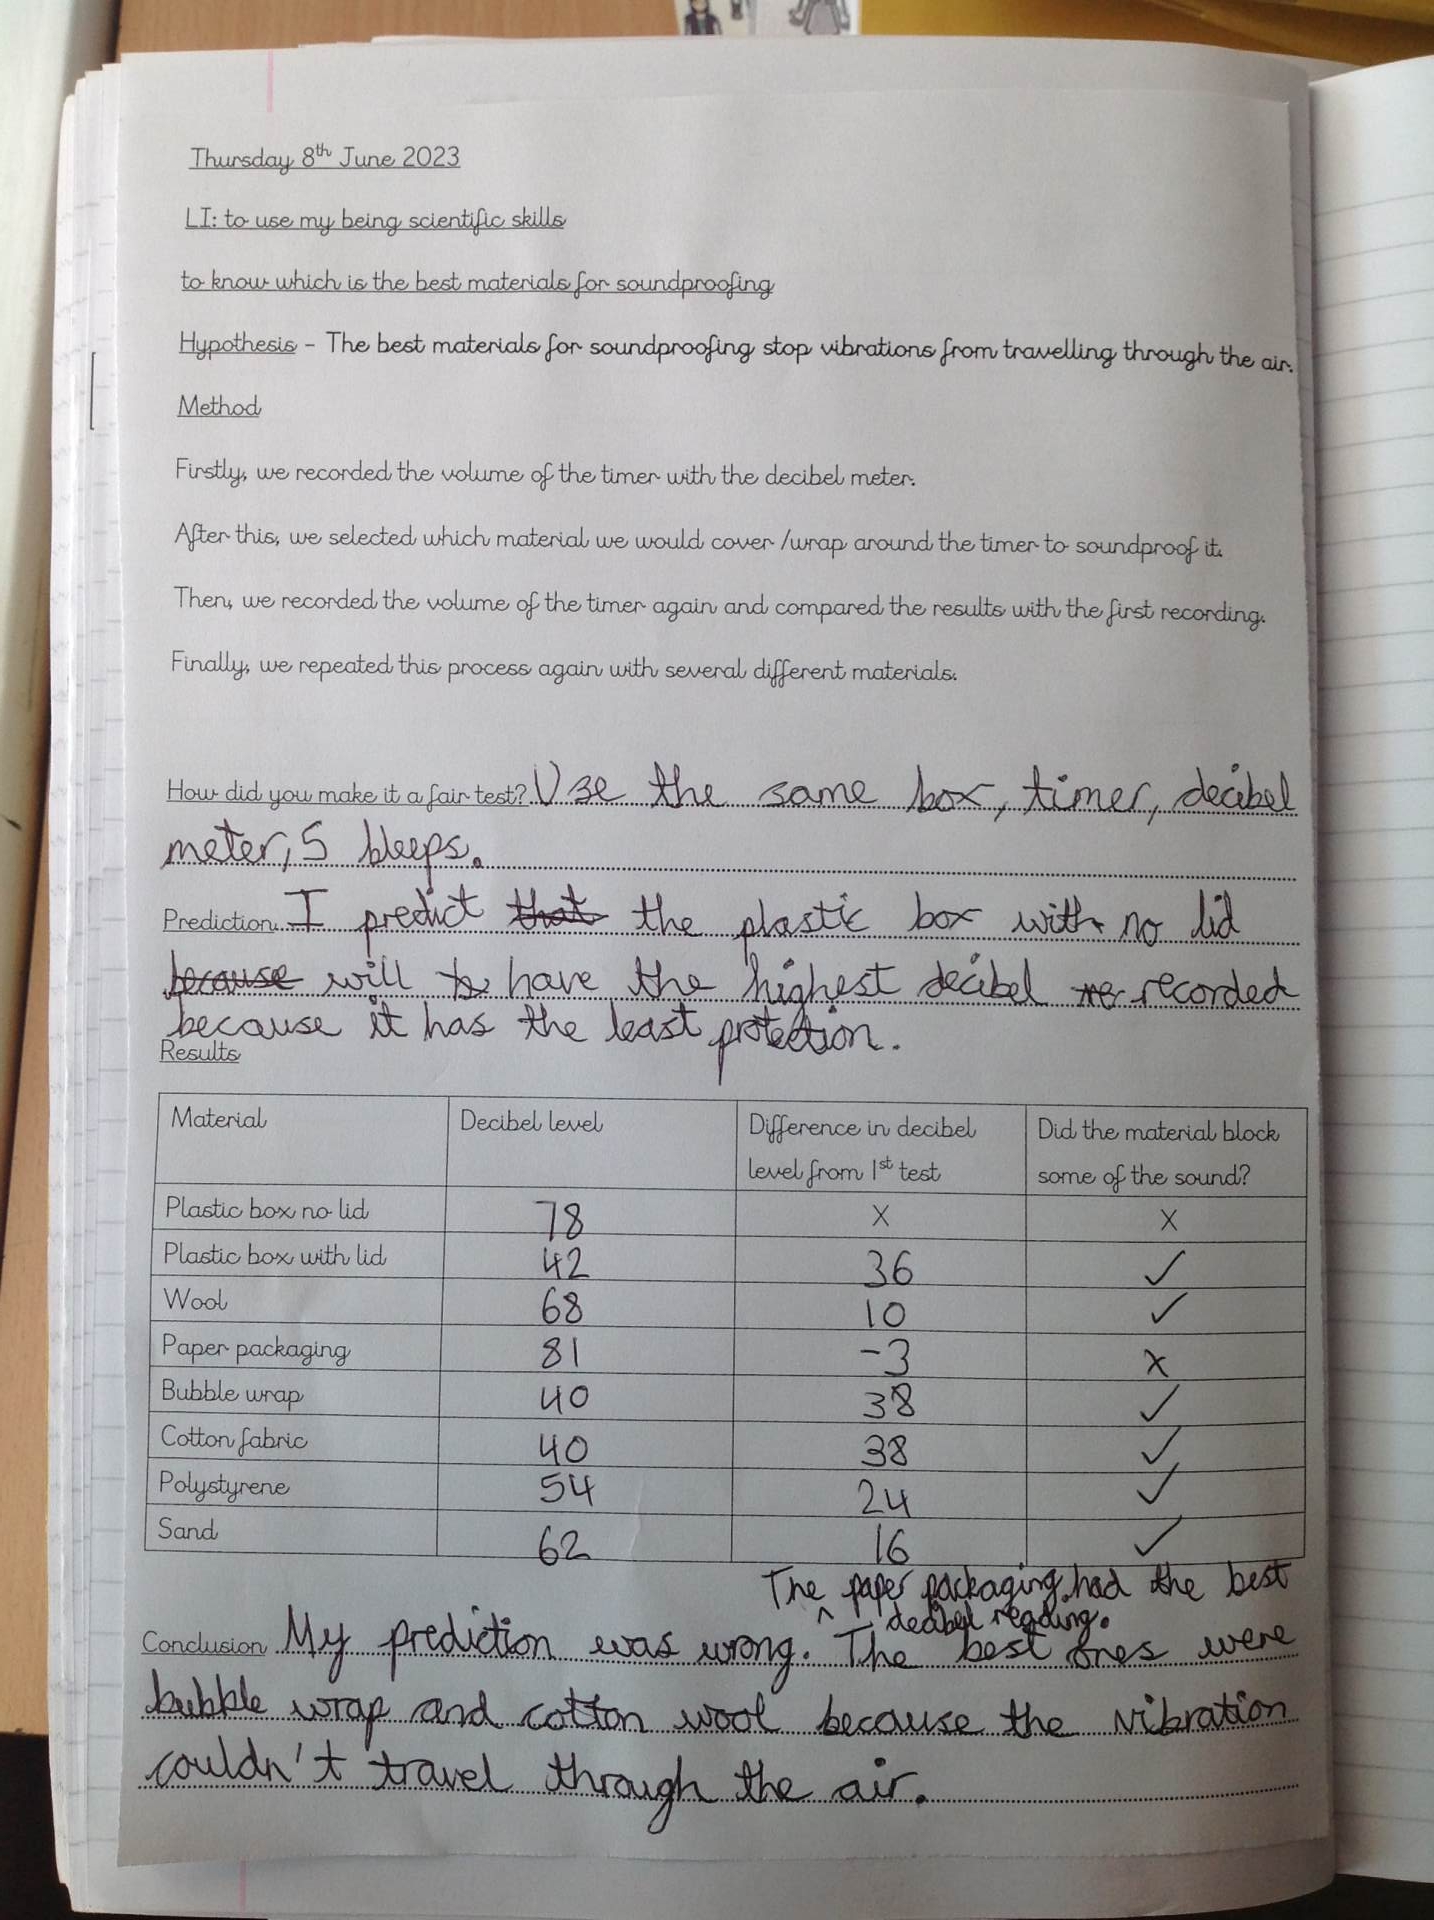 Thursday 8th June 2023
LI: to use my being scientific skills
to know which is the best materials for soundproofing
Hypothesis - The best materials for soundproofing stop vibrations from travelling through the air.
Method
Firstly, we recorded the volume of the timer with the decibel meter.
After this, we selected which material we would cover /wrap around the timer to soundproof it.
Then, we recorded the volume of the timer again and compared the results with the first recording.
Finally, we repeated this process again with several different materials.
How did you make it a fair test? Use the same box, timer, decibel
meter, 5 bleeps.
Prediction. I predict that the plastic box with no lid
because will to have the highest decibel recorded
because it has the least protection.
Results
Material Decibel level Difference in decibel level from 1st test Did the material block some of the sound?
Plastic box no lid 78 X X
Plastic box with lid 42 36 ✓
Wool 68 10 ✓
Paper packaging 81 -3 X
Bubble wrap 40 38 ✓
Cotton fabric 40 38 ✓
Polystyrene 54 24 ✓
Sand 62 16 ✓
The paper packaging had the best
^ decibel reading.
Conclusion My prediction was wrong. The best ones were
bubble wrap and cotton wool because the vibration
couldn't travel through the air.